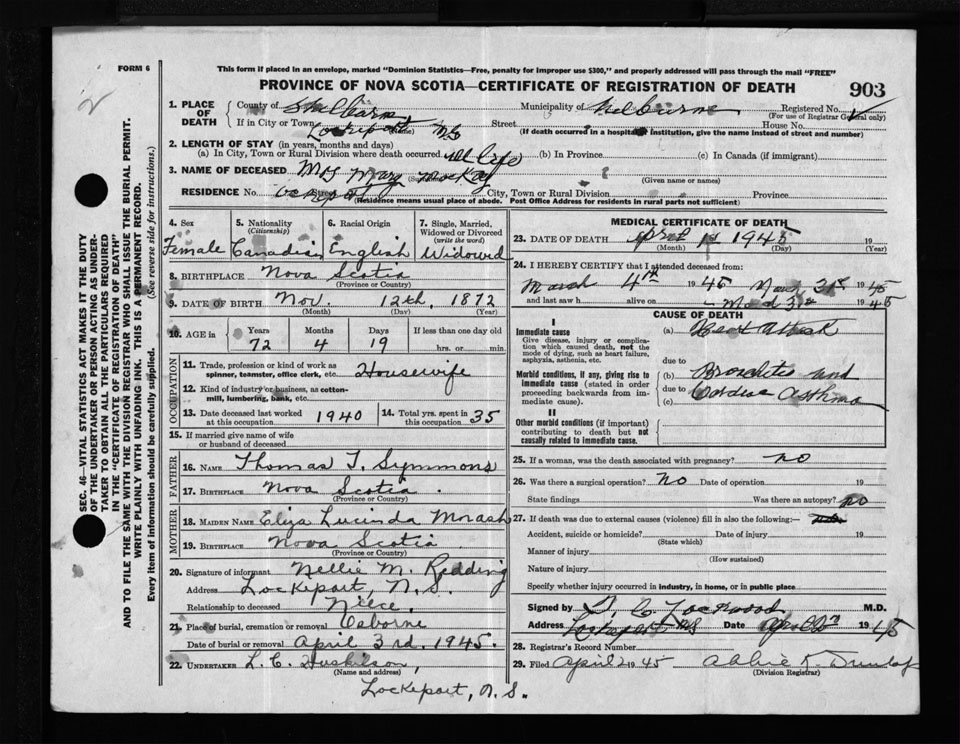 FORM 6
This form if placed in an envelope, marked "Dominion Statistics—Free, penalty for improper use $300," and properly addressed will pass through the mail "FREE"
PROVINCE OF NOVA SCOTIA—CERTIFICATE OF REGISTRATION OF DEATH 903
1. PLACE OF DEATH
County of Shelburne Municipality of Shelburne Registered No.
(For use of Registrar General only)
If in City or Town Lockeport NS Street House No.
(Name) (If death occurred in a hospital or institution, give the name instead of street and number)
2. LENGTH OF STAY (in years, months and days)
(a) In City, Town or Rural Division where death occurred All Life (b) In Province (c) In Canada (if immigrant)
3. NAME OF DECEASED Mrs Mary MacKay
(Given name or names)
RESIDENCE No. Lockeport City, Town or Rural Division Province
(Residence means usual place of abode. Post Office Address for residents in rural parts not sufficient)
4. Sex
Female
5. Nationality
(Citizenship)
Canadian
6. Racial Origin
English
7. Single, Married, Widowed or Divorced
(write the word)
Widowed
8. BIRTHPLACE Nova Scotia
(Province or Country)
9. DATE OF BIRTH Nov. 12th, 1872
(Month) (Day) (Year)
10. AGE in
Years Months Days If less than one day old
72 4 19 hrs. or min.
OCCUPATION
11. Trade, profession or kind of work as spinner, teamster, office clerk, etc. Housewife
12. Kind of industry or business, as cotton-mill, lumbering, bank, etc.
13. Date deceased last worked at this occupation 1940
14. Total yrs. spent in this occupation 35
15. If married give name of wife or husband of deceased
FATHER
16. NAME Thomas T. Symmons
17. BIRTHPLACE Nova Scotia.
(Province or Country)
MOTHER
18. MAIDEN NAME Eliza Lucinda Morash
19. BIRTHPLACE Nova Scotia
(Province or Country)
20. Signature of informant Nellie M. Redding
Address Lockeport, N.S.
Relationship to deceased Niece.
21. Place of burial, cremation or removal Osborne
Date of burial or removal April 3rd. 1945.
22. UNDERTAKER L. C. Huskilson,
(Name and address)
Lockeport, N.S.
MEDICAL CERTIFICATE OF DEATH
23. DATE OF DEATH April 1st 1945 19
(Month) (Day) (Year)
24. I HEREBY CERTIFY that I attended deceased from:
March 4th 1945 31st 1945
and last saw h alive on 31st 1945
CAUSE OF DEATH
I
Immediate cause
Give disease, injury or complication which caused death, not the mode of dying, such as heart failure, asphyxia, asthenia, etc.
(a) Heart Attack
due to
Morbid conditions, if any, giving rise to immediate cause (stated in order proceeding backwards from immediate cause).
(b) Bronchitis and
due to
(c) Cardiac Asthma
II
Other morbid conditions (if important) contributing to death but not causally related to immediate cause.
25. If a woman, was the death associated with pregnancy? no
26. Was there a surgical operation? no Date of operation 19
State findings Was there an autopsy? no
27. If death was due to external causes (violence) fill in also the following:— no
Accident, suicide or homicide? Date of injury 19
(State which)
Manner of injury
(How sustained)
Nature of injury
Specify whether injury occurred in industry, in home, or in public place
Signed by L. C. Lockwood M.D.
Address Lockeport NS Date April 2nd 1945
28. Registrar's Record Number
29. Filed April 2 1945 Abbie K. Dunlop
(Division Registrar)
SEC. 46—VITAL STATISTICS ACT MAKES IT THE DUTY
OF THE UNDERTAKER OR PERSON ACTING AS UNDER-
TAKER TO OBTAIN ALL THE PARTICULARS REQUIRED
IN THE "CERTIFICATE OF REGISTRATION OF DEATH"
AND TO FILE THE SAME WITH THE DIVISION REGISTRAR WHO SHALL ISSUE THE BURIAL PERMIT.
WRITE PLAINLY WITH UNFADING INK. THIS IS A PERMANENT RECORD.
Every item of information should be carefully supplied. (See reverse side for instructions.)